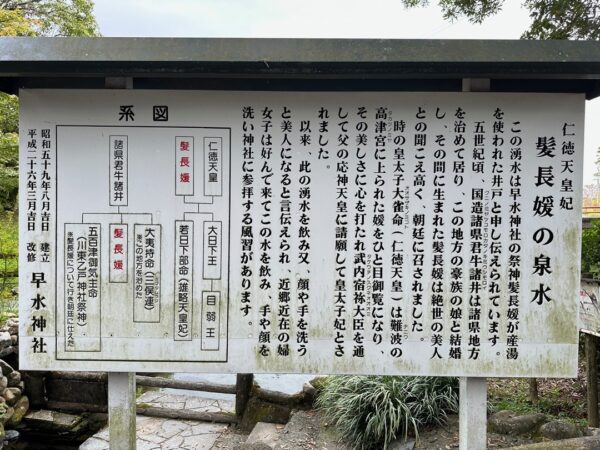 仁徳天皇妃
髪長媛の泉水
この湧水は早水神社の祭神髪長媛が産湯
を使われた井戸と申し伝えられています。
五世紀頃、国造諸県君牛諸井は諸県地方
を治めて居り、この地方の豪族の娘と結婚
し、その間に生まれた髪長媛は絶世の美人
との聞こえ高く、朝廷に召されました。
時の皇太子大雀命（仁徳天皇）は難波の
高津宮に上られた媛をひと目御覧になり、
その美しさに心を打たれ武内宿祢大臣を通
して父の応神天皇に請願して皇太子妃とさ
れました。
以来、此の湧水を飲み又、顔や手を洗う
と美人になると言伝えられ、近郷近在の婦
女子は好んで来てこの水を飲み、手や顔を
洗い神社に参拝する風習があります。
系図
仁徳天皇
髪長媛
大日下王
目弱王
若日下部命（雄略天皇妃）
諸県君牛諸井
大夷持命（二俣連）
髪長媛
五百津御気主命
（川東フノ戸神社祭神）
昭和五十九年八月吉日 建立
平成二十六年二月吉日 改修
早水神社